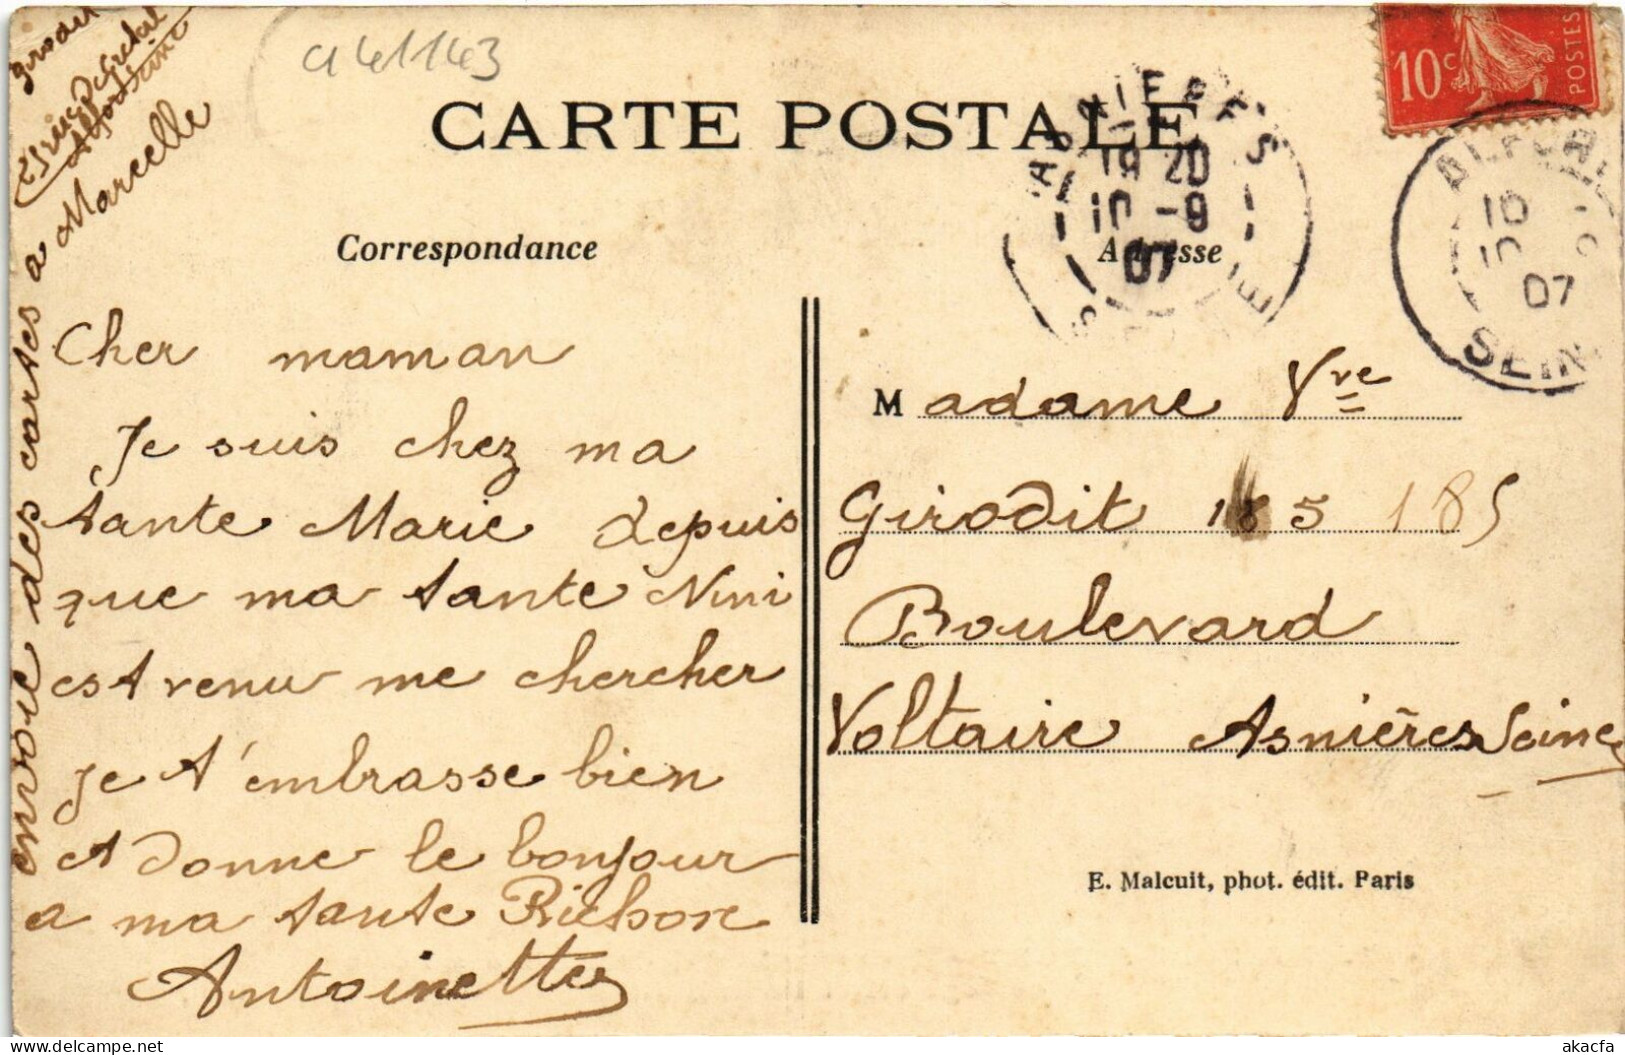 a41143
CARTE POSTALE
10c
POSTES
ASNIERES
19 20
10 -9
07
SEINE
10
10 -9
07
SEIN
Correspondance
Adresse
Cher maman
Je suis chez ma
tante Marie depuis
que ma tante Nini
est venu me chercher
Je t'embrasse bien
et donne le bonjour
a ma tante
Antoinette
envoie des cartes a Marcelle
Madame Vve
Girodit 185 185
Boulevard
Voltaire Asnières Seine
E. Malcuit, phot. édit. Paris
akacfa